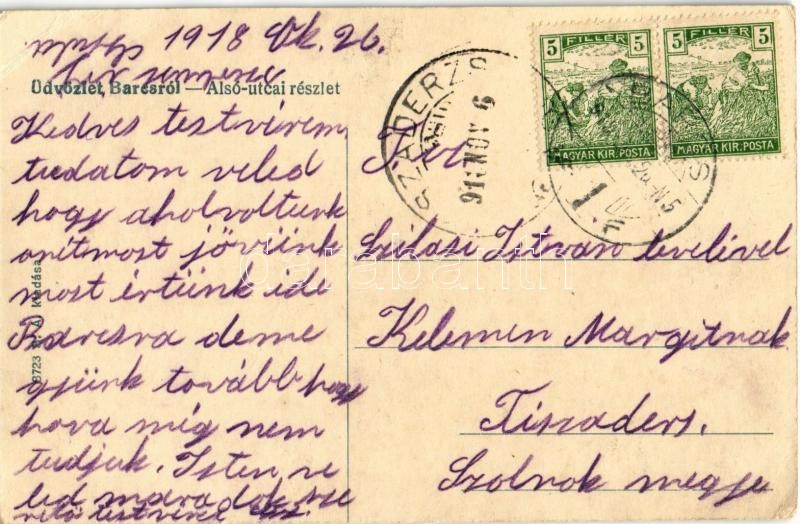 1918 Ok. 26.
Üdvözlet Barcsról — Alsó-utcai részlet
Kedves testvérem
tudatom veled
hogy ahol voltunk
onét most jövünk
most értünk ide
Barcsra deme
gjünk tovább hogy
hova még nem
tudjuk. Isten ve
led maradok sze
rető testvéred
8723 kiadása
FILLÉR
5 5
MAGYAR KIR. POSTA
FILLÉR
5 5
MAGYAR KIR. POSTA
918 NOV 6
Szilasi Istvan levelével
Kelemen Margitnak
Tiszaders.
Szolnok megye
darabanth